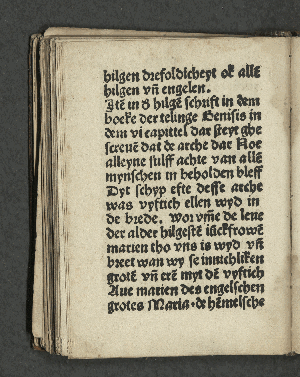 hilgen drefoldicheyt ok allē
hilgen vñ engelen.
Itē in ð hilgē schrift in dem
boeke der telinge Genisis in
dem vi capittel dar steyt ghe
screuē dat de arche dar Noe
alleyne sulff achte van allē
mynschen in beholden bleff
Dyt schyp efte desse arche
was vyftich ellen wyd in
de brede. Wor vme de leue
der alder hilgestē iūckfrowē
marien tho vns is wyd vñ
breet wan wy se innichliken
grotē vñ erē myt dē vyftich
Aue marien des engelschen
grotes Maria. de hēmelsche